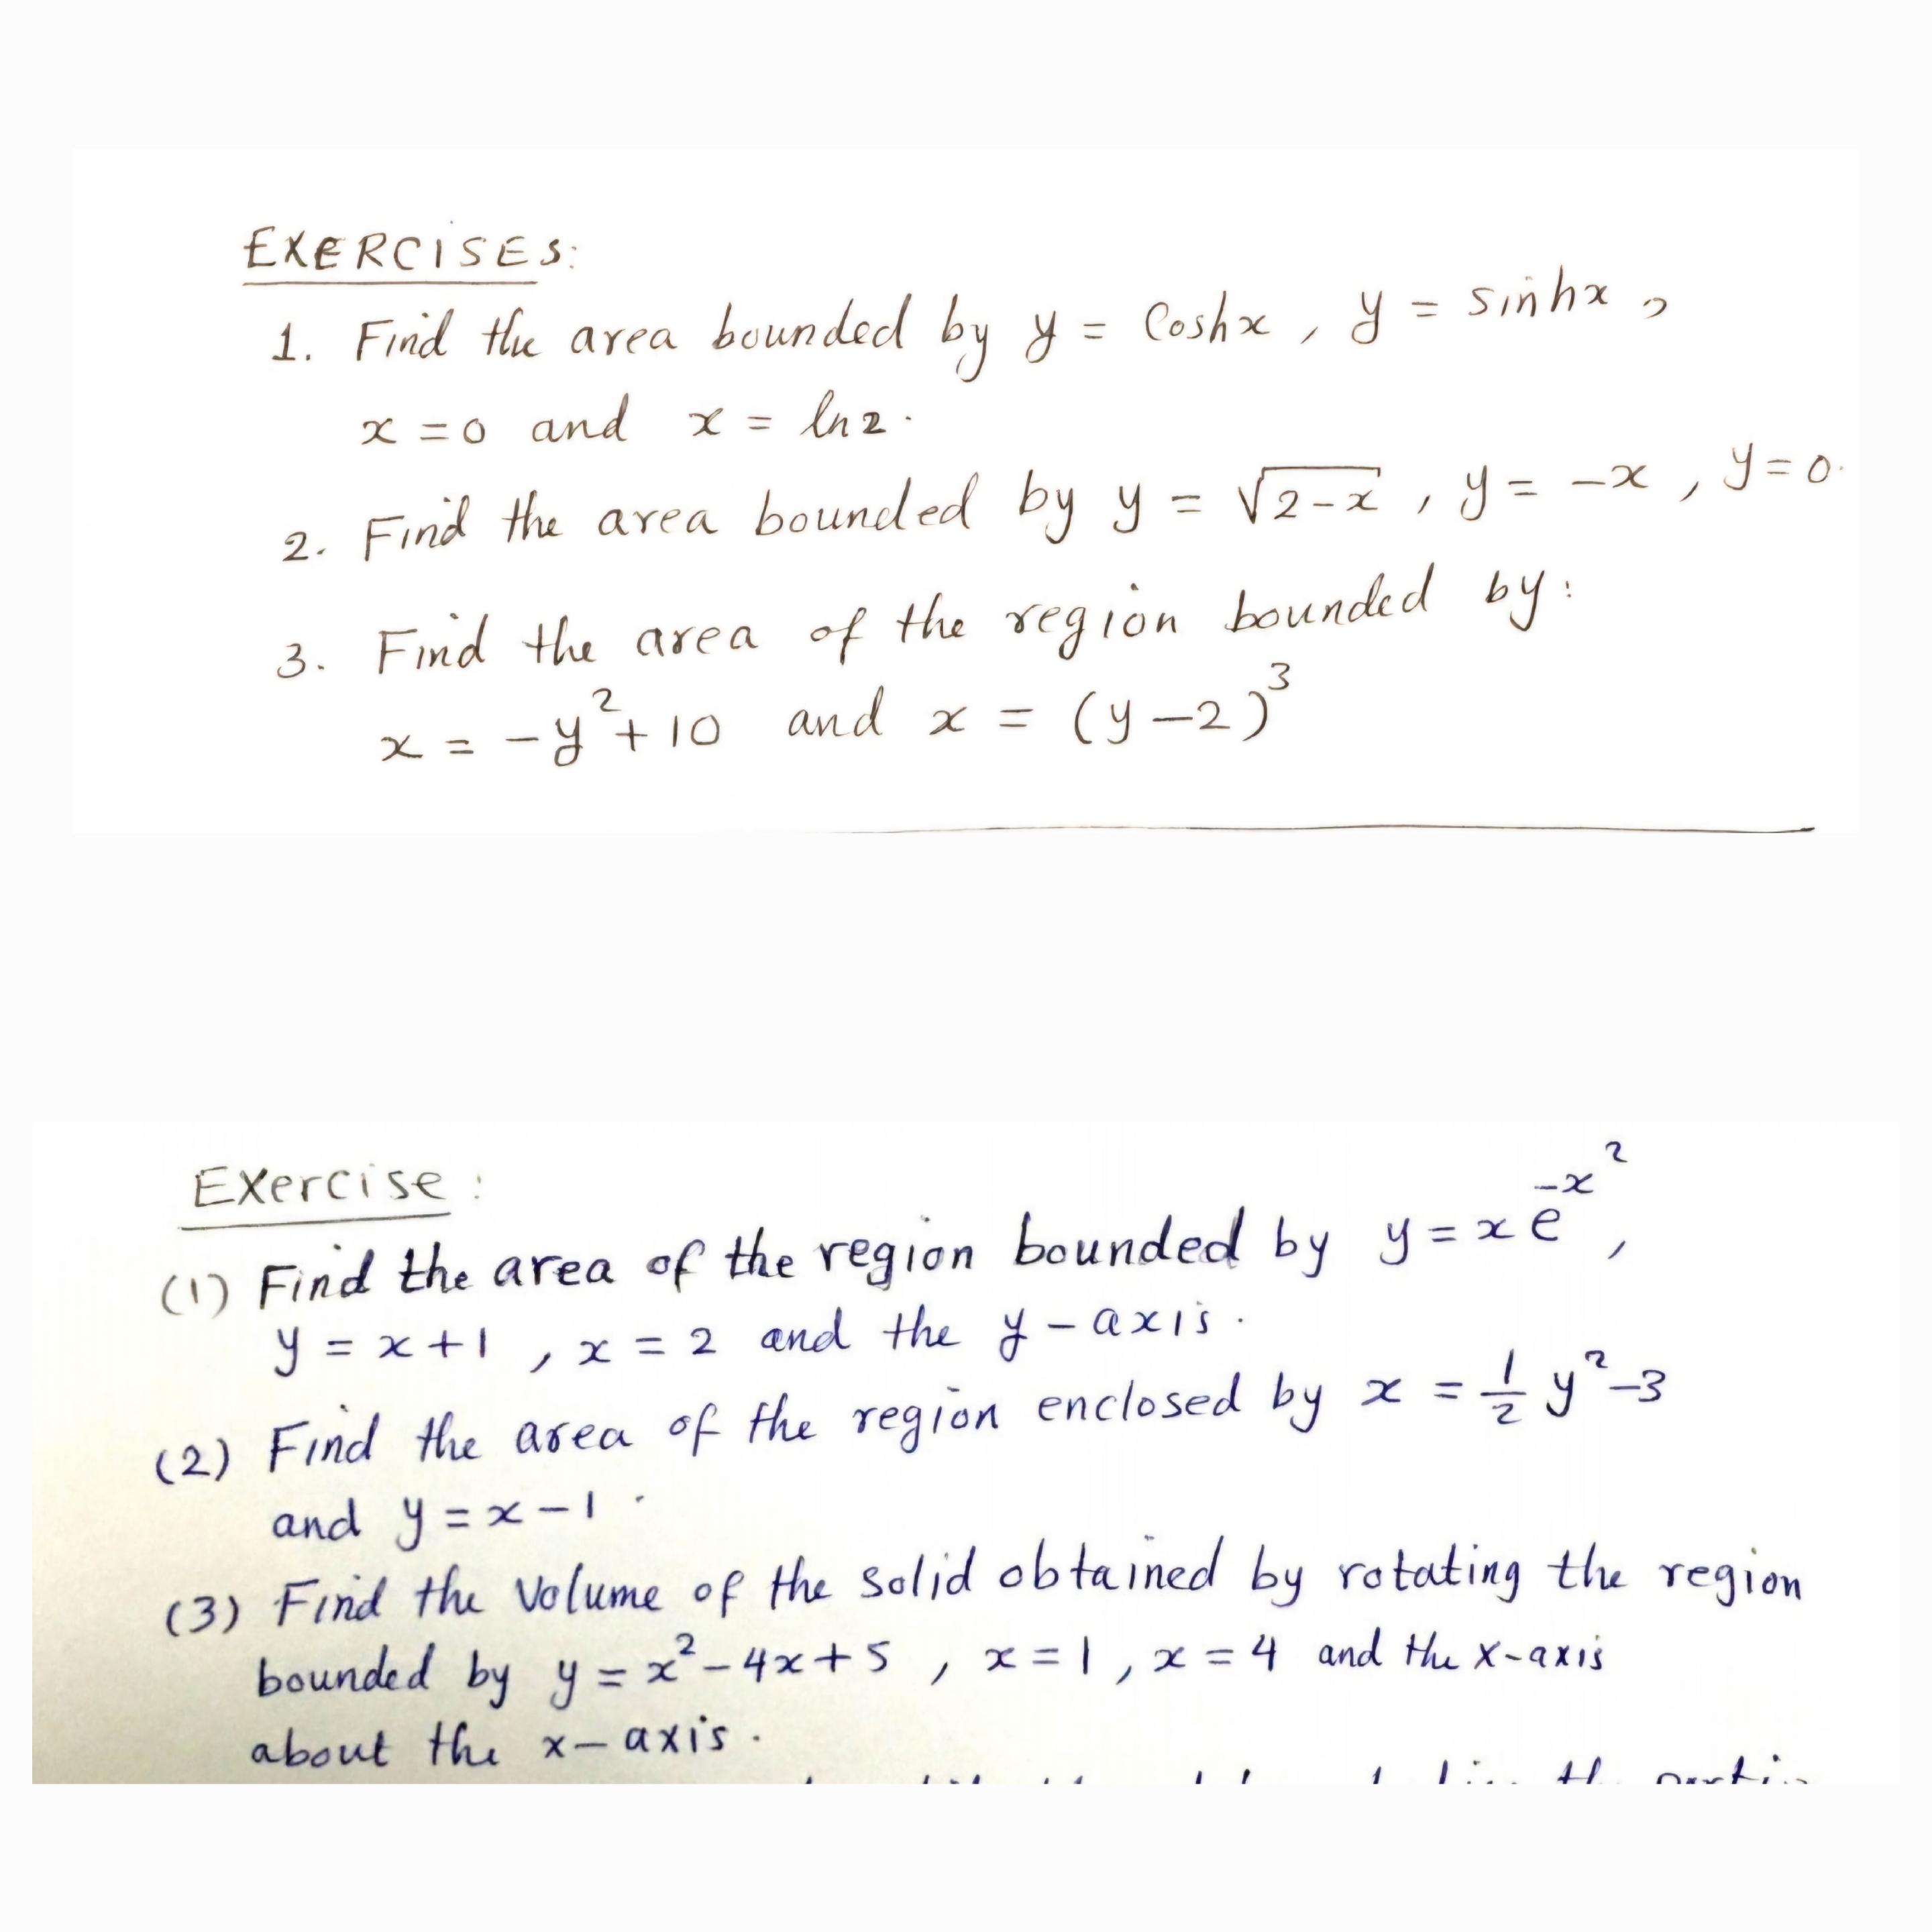 EXERCISES:
1. Find the area bounded by y = Coshx , y = sinhx ,
x = 0 and x = ln2.
2. Find the area bounded by y = √2-x , y = -x , y = 0.
3. Find the area of the region bounded by:
x = -y²+10 and x = (y-2)³
Exercise :
(1) Find the area of the region bounded by y = x e^-x² ,
y = x+1 , x = 2 and the y-axis.
(2) Find the area of the region enclosed by x = 1/2 y²-3
and y = x-1 .
(3) Find the Volume of the solid obtained by rotating the region
bounded by y = x²-4x+5 , x = 1 , x = 4 and the x-axis
about the x-axis.